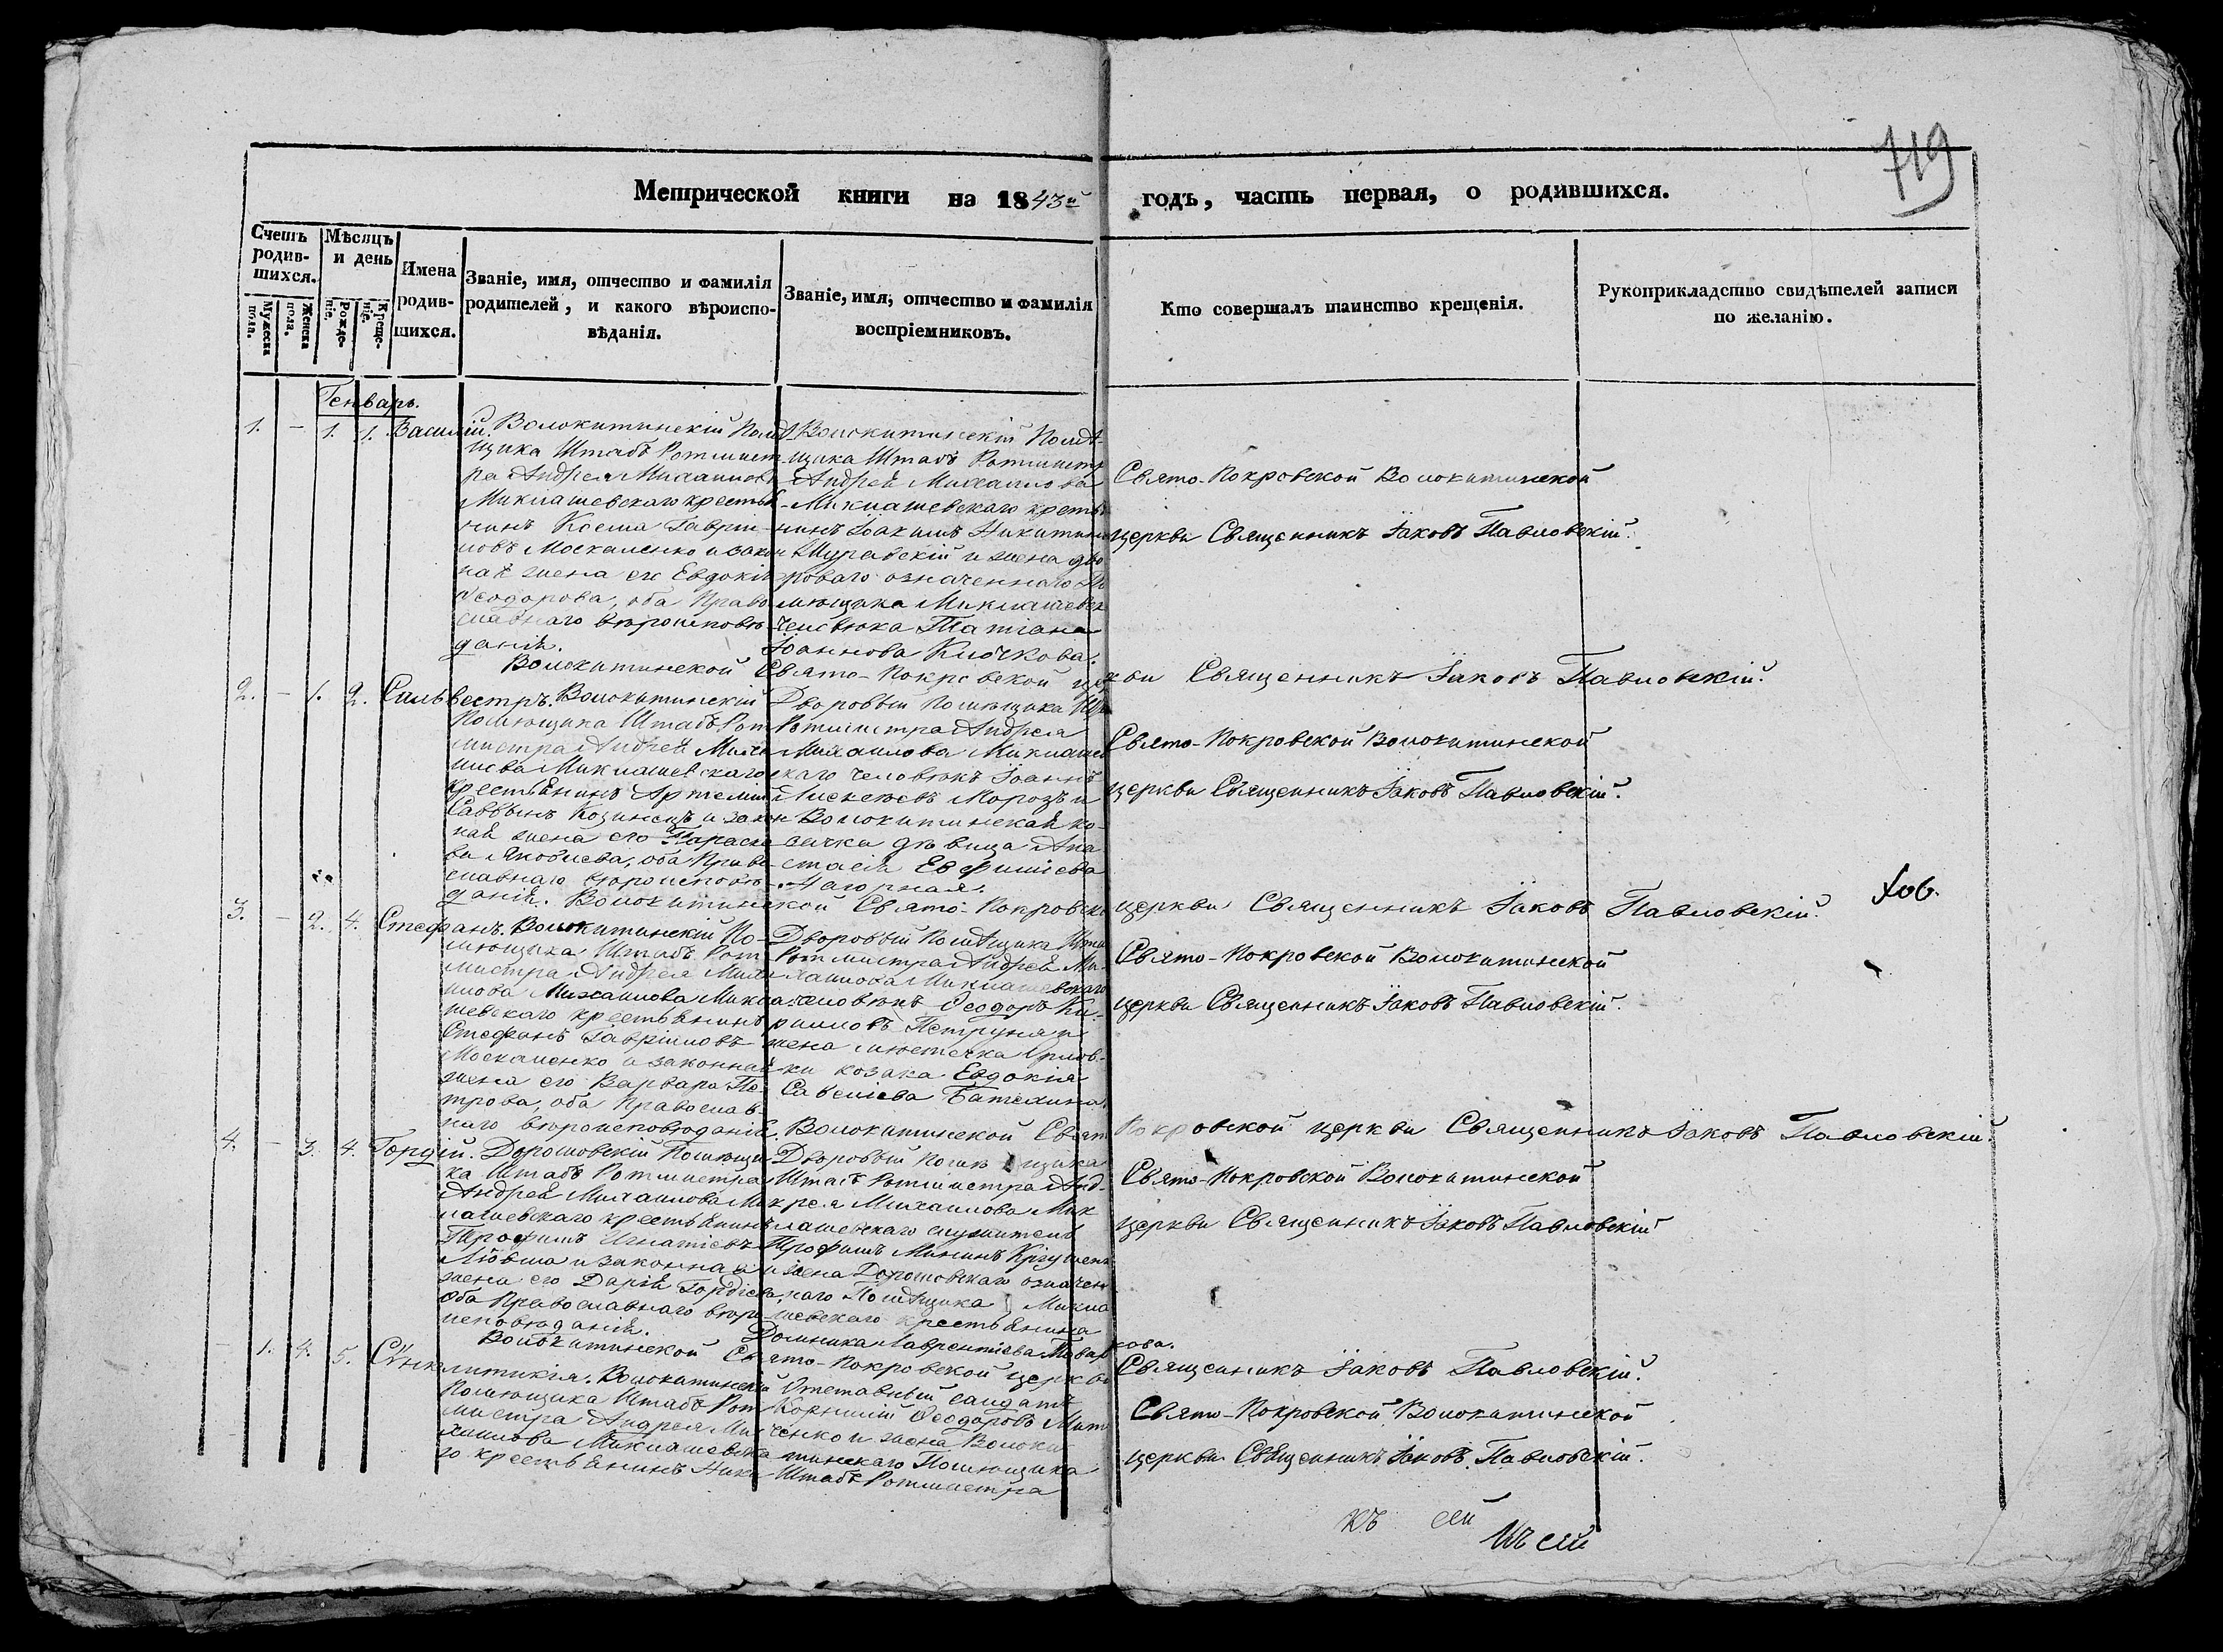 719
Метрической книги на 1843й годъ, часть первая, о родившихся.
Счетъ родив-шихся.
Мужеска пола.
Женска пола.
Мѣсяцъ и день
Рожде-ніе.
Креще-ніе.
Имена родив-шихся.
Званіе, имя, отчество и фамилія родителей, и какого вѣроиспо-вѣданія.
Званіе, имя, отчество и фамилія воспріемниковъ.
Кто совершалъ таинство крещенія.
Рукоприкладство свидѣтелей записи по желанію.
Генварь.
1. - 1. 1. Василій.
Волокитинскій Помѣ
щика Штабъ Ротмист
ра Андрея Михаилов
Миклашевскаго крестья
нинъ Косма Гаврии-
ловъ Москаленко и закон
ная жена его Евдокія
Ѳеодорова, оба Право
славнаго вѣроисповѣ
данія.
Волокитинскій Помѣ-
щика Штабъ Ротмистр
Андрея Михаилова
Миклашевскаго кресть
нинъ Іоакимъ Никитинъ
Журавскій и жена дво
роваго означеннаго По
мѣщика Миклашевск
человѣка Татіана
Іоаннова Клочкова.
Свято-Покровской Волокитинской
церкви Священникъ Іаковъ Павловскій.
Волокитинской Свято-Покровской церкви Священникъ Іаковъ Павловскій.
2. - 1. 2. Сильвестръ.
Волокитинскій
Помѣщика Штабъ Рот
мистра Андрея Миха
илова Миклашевскаго
крестьянинъ Артемій
Саввинъ Козинецъ и закон
ная жена его Параске
ва Яковлева, оба Право
славнаго вѣроисповѣ
данія.
Дворовый Помѣщика Шта
Ротмистра Андрея
Михаилова Миклашев
скаго человѣкъ Іоаннъ
Алексѣевъ Морозъ и
Волокитинская ко-
зачка дѣвица Ана
стасія Евфиміева
Нагорная.
Свято-Покровской Волокитинской
церкви Священникъ Іаковъ Павловскій.
Волокитинской Свято-Покровско церкви Священникъ Іаковъ Павловскій.
3. - 2. 4. Стефанъ.
Волокитинскій По-
мѣщика Штабъ Рот
мистра Андрея Миха
илова Михаилова Микла
шевскаго крестьянинъ
Стефанъ Гавріиловъ
Москаленко и законная
жена его Варвара Пе
трова, оба Православ-
наго вѣроисповѣданія.
Дворовый Помѣщика Шта
Ротмистра Андрея Ми-
хаилова Миклашевскаго
человѣкъ Ѳеодоръ Ки-
рилловъ Петруня и
жена мѣстечка
ки козака Евдокія
Савеліева Батехина.
Свято-Покровской Волокитинской
церкви Священникъ Іаковъ Павловскій.
Волокитинской Свято Покровской церкви Священникъ Іаковъ Павловскій.
4. - 3. 4. Гордій.
Дорошовскій Помѣщи
ка Штабъ Ротмистра
Андрея Михаилова Мик
лашевскаго крестьянинъ
Трофимъ Игнатіевъ
и законная
жена его Дарія Гордіева,
оба Православнаго вѣро
исповѣданія.
Дворовый Помѣщика
Штабъ Ротмистра Анд-
рея Михаилова Мик
лашевскаго служитель
Трофимъ Мининъ
и жена Дорошовскаго означен
наго Помѣщика Микла
шевскаго крестьянина
Домника Лаврентіева
кова.
Свято-Покровской Волокитинской
церкви Священникъ Іаковъ Павловскій
Волокитинской Свято-Покровской церкви Священникъ Іаковъ Павловскій.
- 1. 4. 5. Сѵнклитикія.
Волокитинскій
Помѣщика Штабъ Рот
мистра Андрея Ми
хаилова Миклашевска
го крестьянинъ Ники
Отставный салдатъ
Корнилій Ѳеодоровъ
ченко и жена Волоки
тинскаго Помѣщика
Штабъ Ротмистра
Свято-Покровской Волокитинской
церкви Священникъ Іаковъ Павловскій.
къ сей